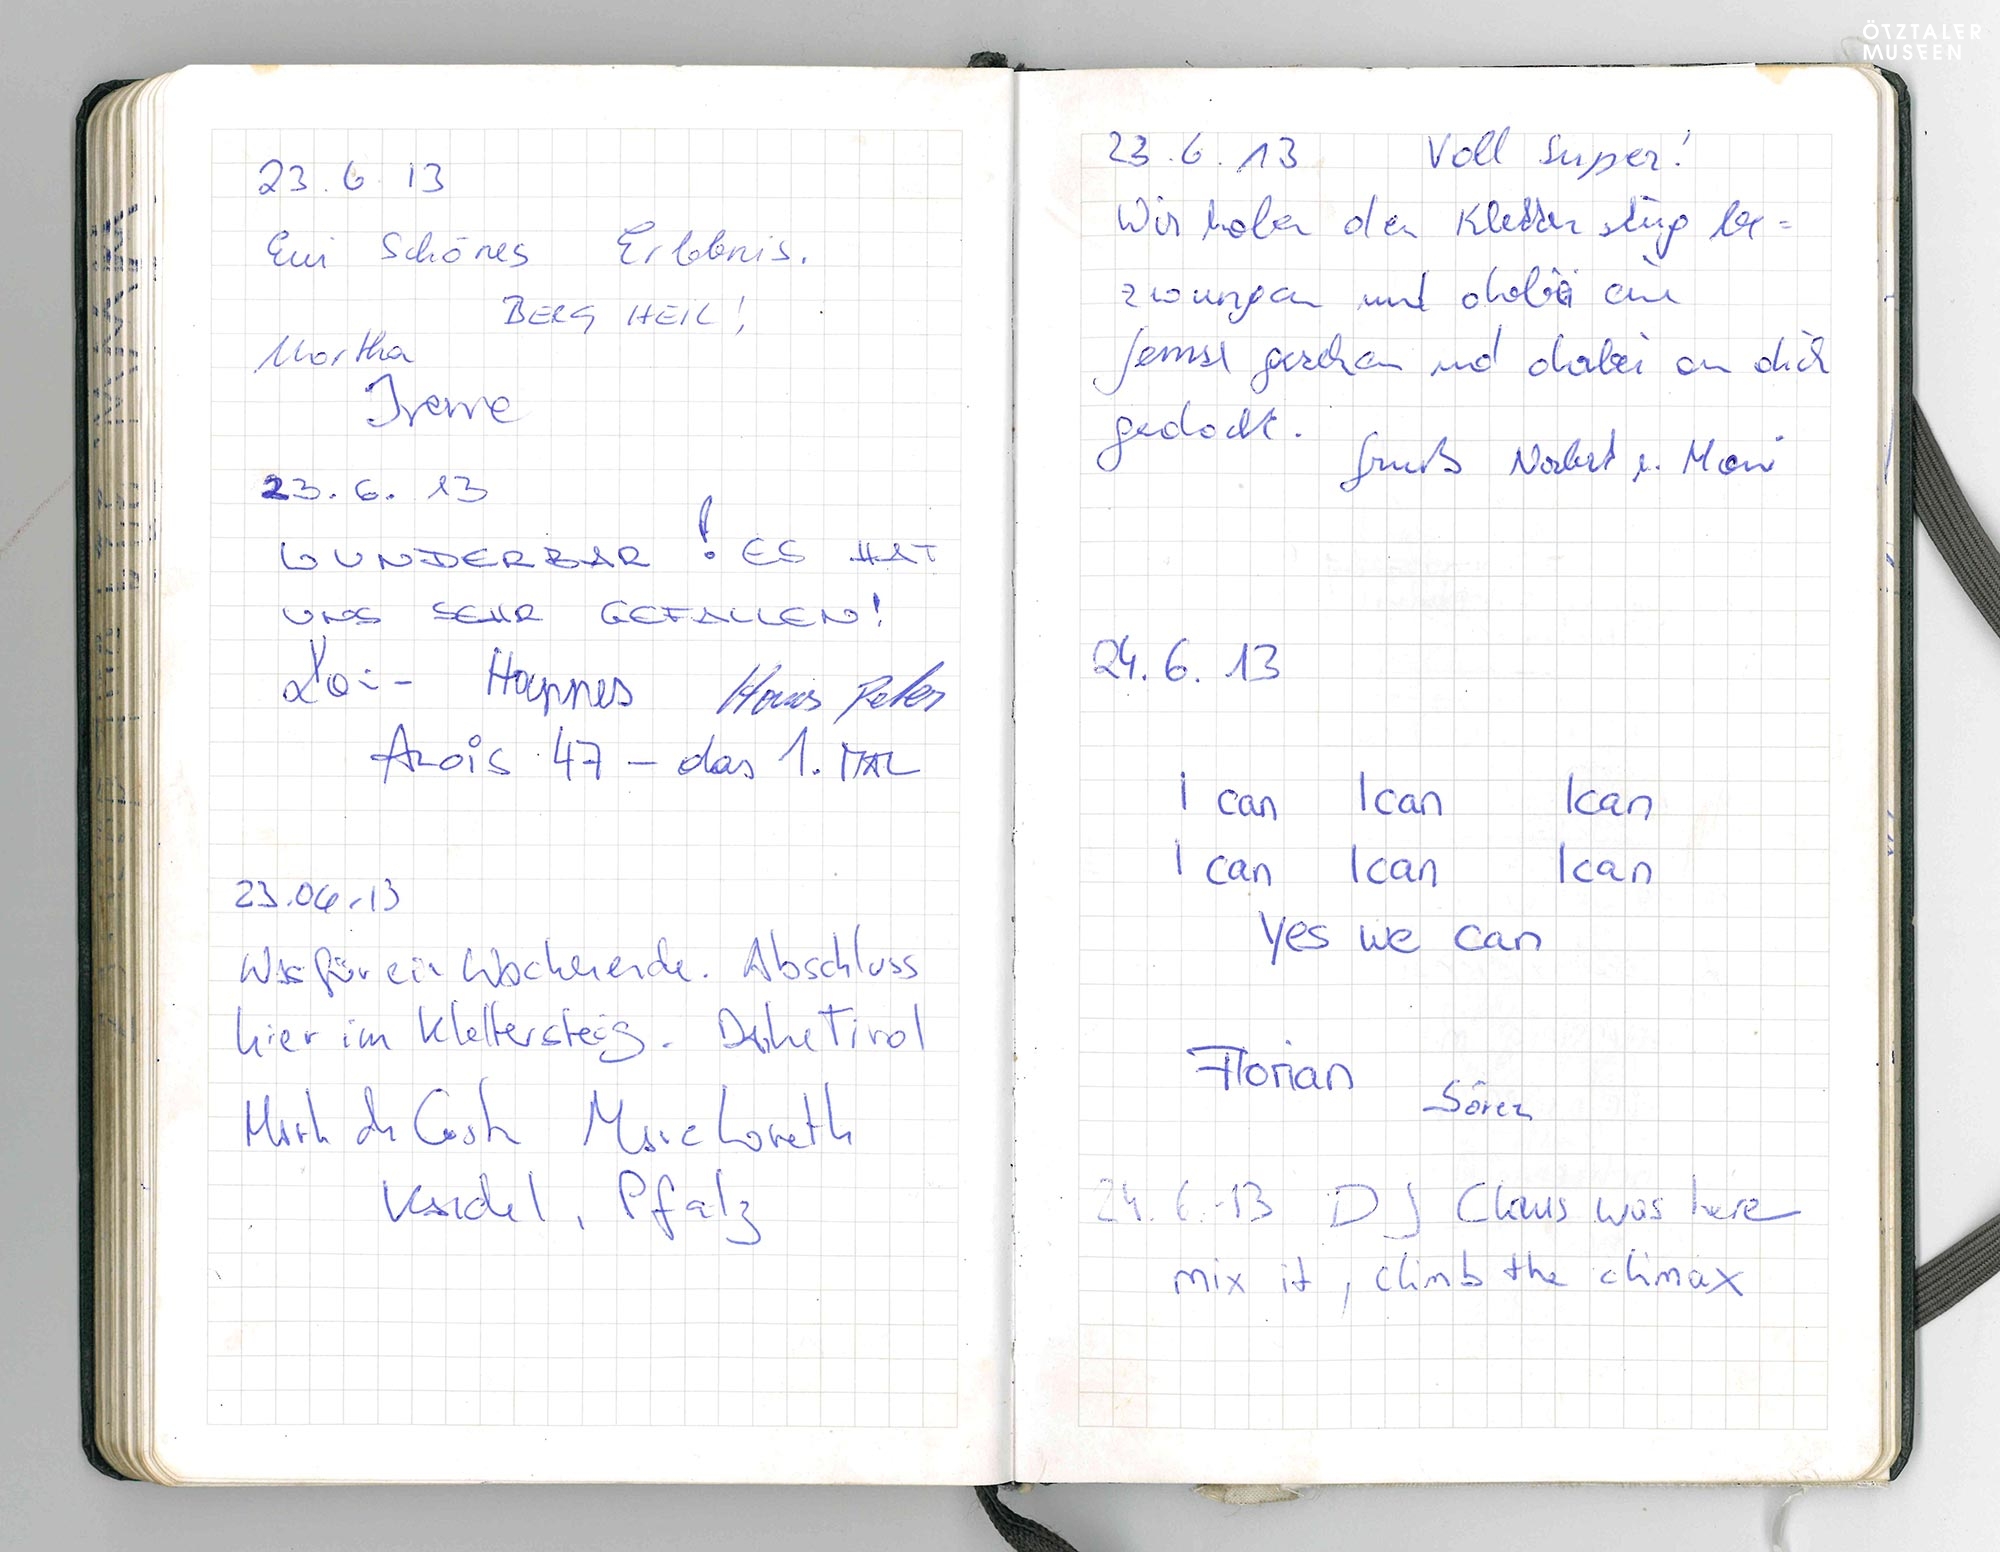 ÖTZTALER
MUSEEN
23.6 13
Ein Schönes Erlebnis.
BERG HEIL!
Martha
Irene
23.6. 13
WUNDERBAR! ES HAT
UNS SEHR GEFALLEN!
Hannes Hans Peter
Alois 47 – das 1. MAL
23.06.13
Was für ein Wochenende. Abschluss
hier im Klettersteig. Danke Tirol
Mark da Costa Marc Loreth
Kandel, Pfalz
23.6.13 Voll Super!
Wir haben den Klettersteig be=
zwungen und dabei eine
Gemse gesehen und dabei an dich
gedacht.
Gruß Norbert u. Moni
24.6.13
I can I can I can
I can I can I can
Yes we can
Florian
Sören
24.6.-13 DJ Claus was here
mix it, climb the climax